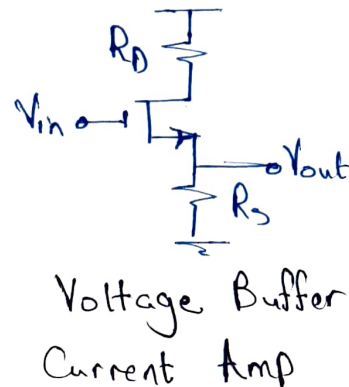 R_D
Vin
Vout
R_S
Voltage Buffer
Current Amp